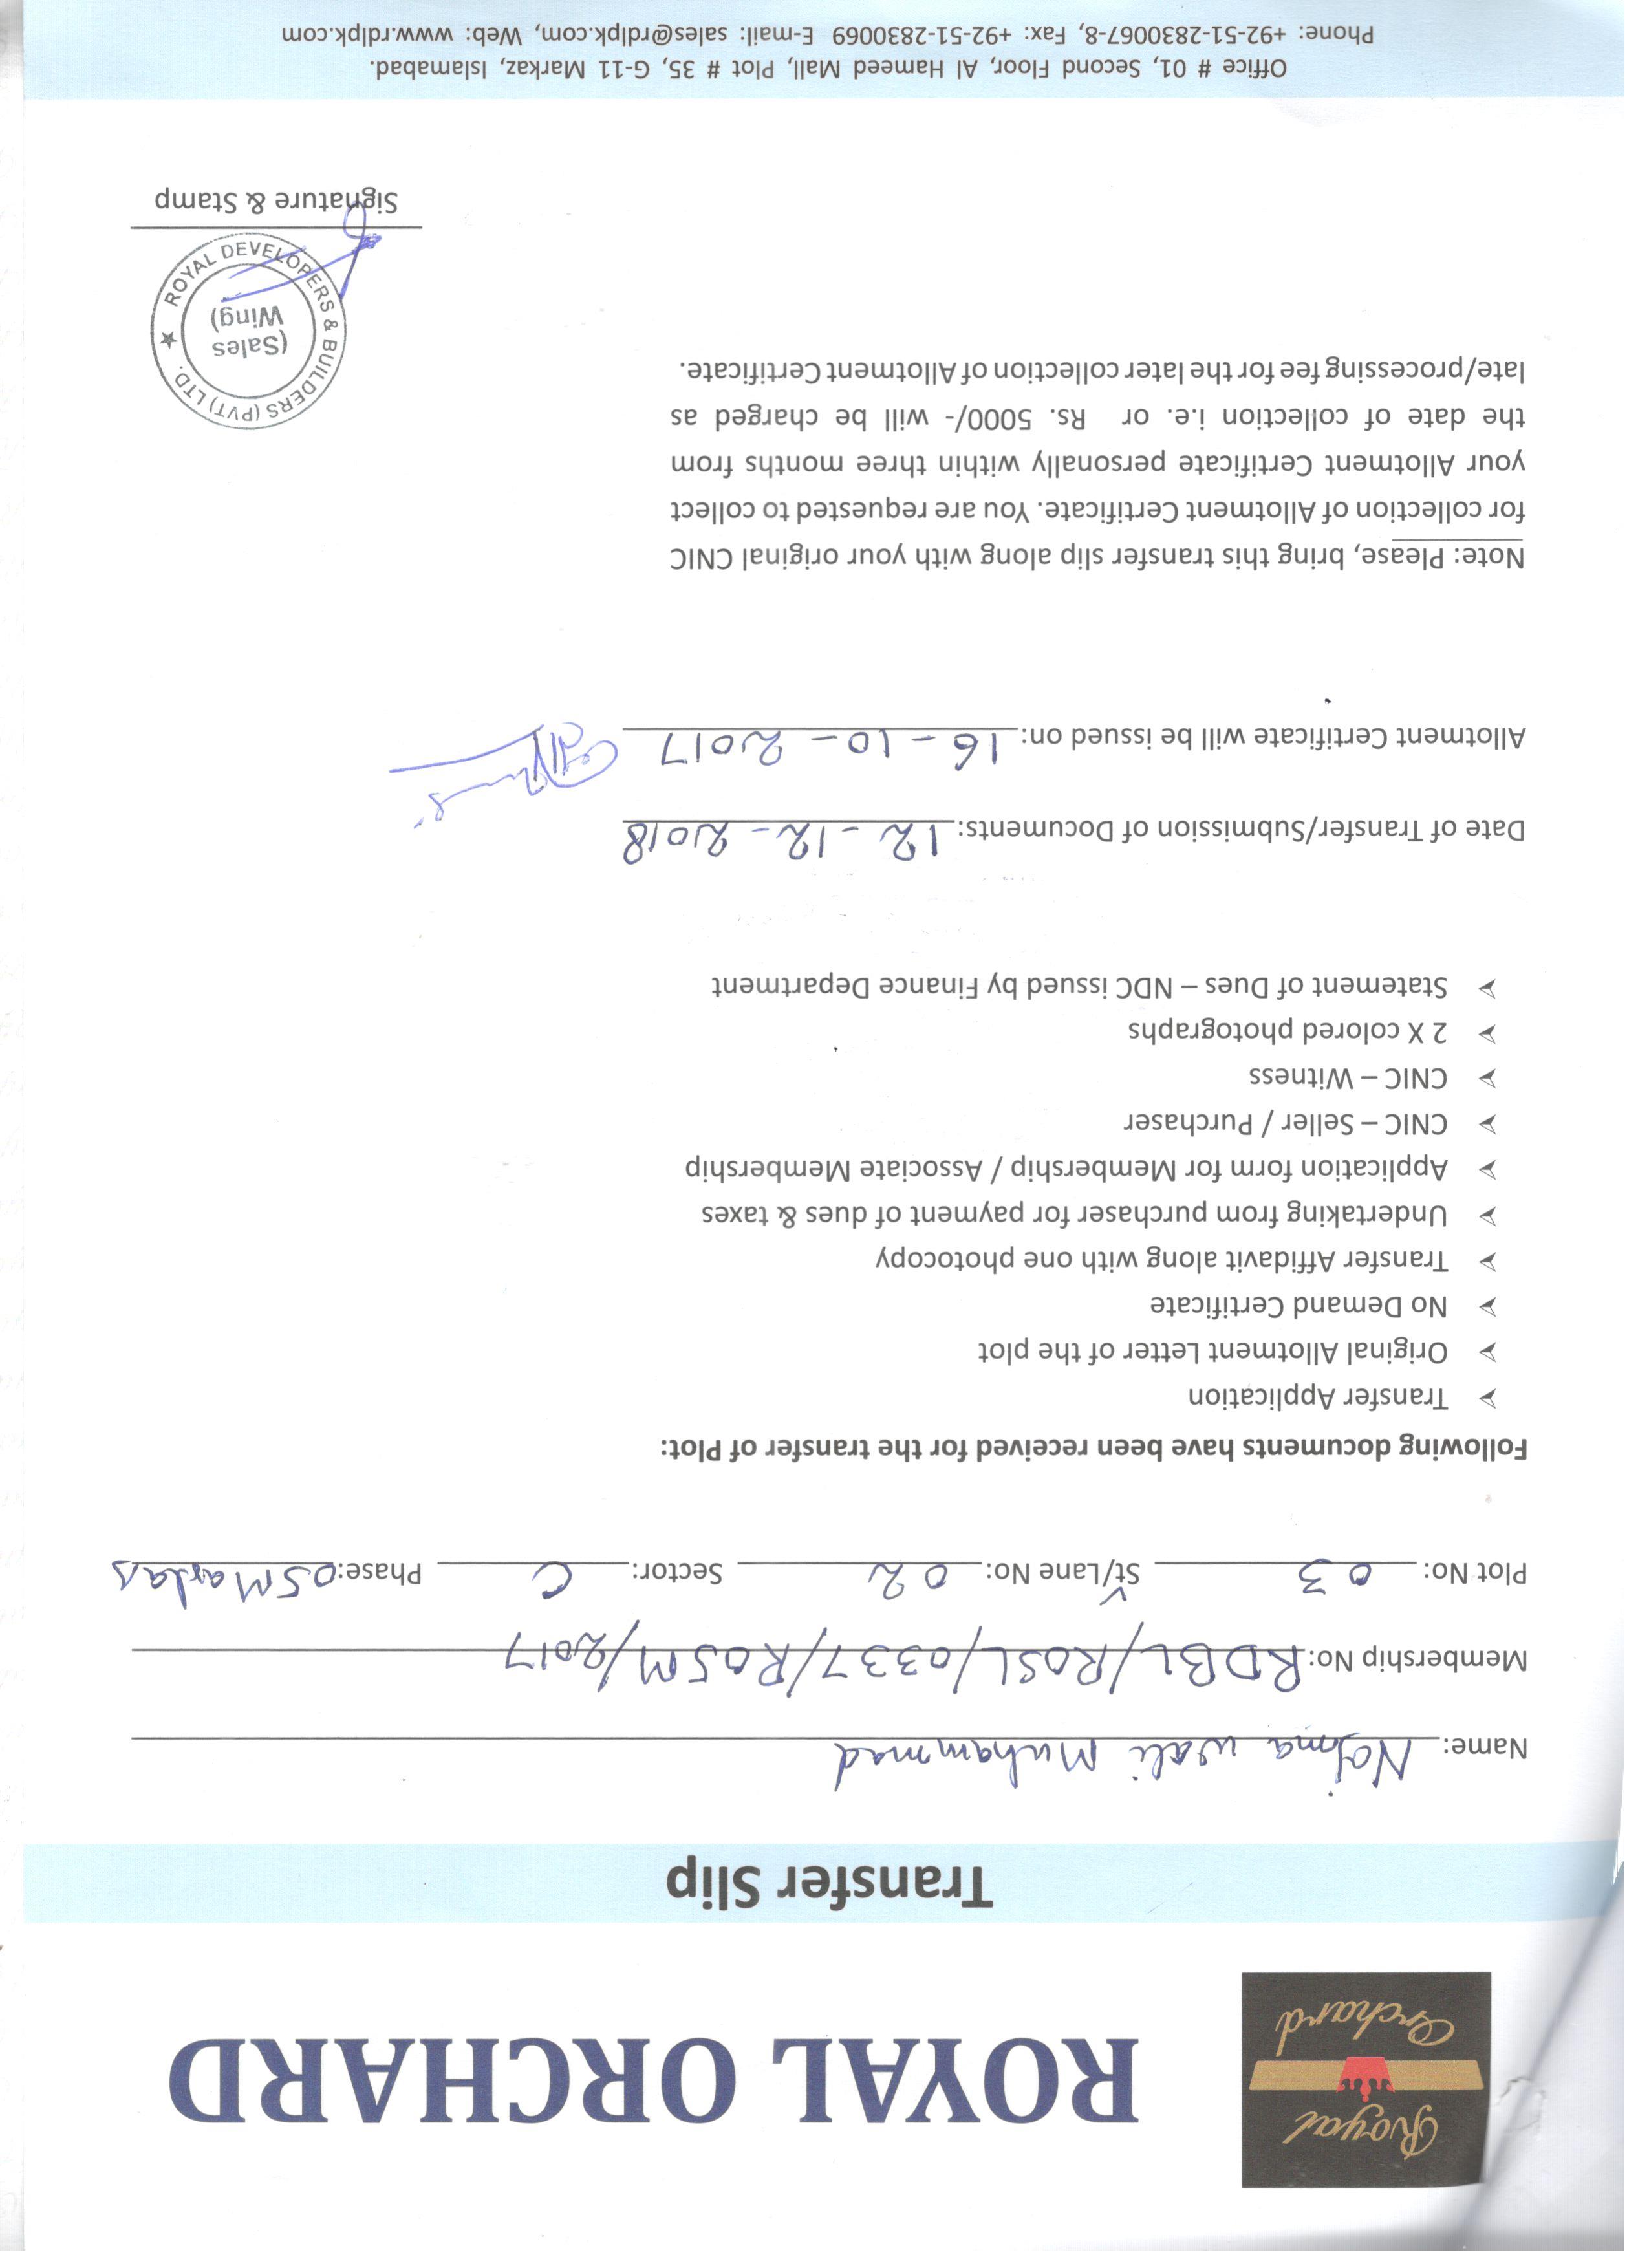 Royal
Orchard
ROYAL ORCHARD
Transfer Slip
Name: Najma wali Muhammad
Membership No: RDBL/ROSL/0337/RO5M/2017
Plot No: 03 St/Lane No: 02 Sector: C Phase: 05 Marlas
Following documents have been received for the transfer of Plot:
➢ Transfer Application
➢ Original Allotment Letter of the plot
➢ No Demand Certificate
➢ Transfer Affidavit along with one photocopy
➢ Undertaking from purchaser for payment of dues & taxes
➢ Application form for Membership / Associate Membership
➢ CNIC – Seller / Purchaser
➢ CNIC – Witness
➢ 2 X colored photographs
➢ Statement of Dues – NDC issued by Finance Department
Date of Transfer/Submission of Documents: 12-12-2018
Allotment Certificate will be issued on: 16-10-2017
Note: Please, bring this transfer slip along with your original CNIC
for collection of Allotment Certificate. You are requested to collect
your Allotment Certificate personally within three months from
the date of collection i.e. or Rs. 5000/- will be charged as
late/processing fee for the later collection of Allotment Certificate.
ROYAL DEVELOPERS & BUILDERS (PVT) LTD. ★
(Sales
Wing)
Signature & Stamp
Office # 01, Second Floor, Al Hameed Mall, Plot # 35, G-11 Markaz, Islamabad.
Phone: +92-51-2830067-8, Fax: +92-51-2830069 E-mail: sales@rdlpk.com, Web: www.rdlpk.com